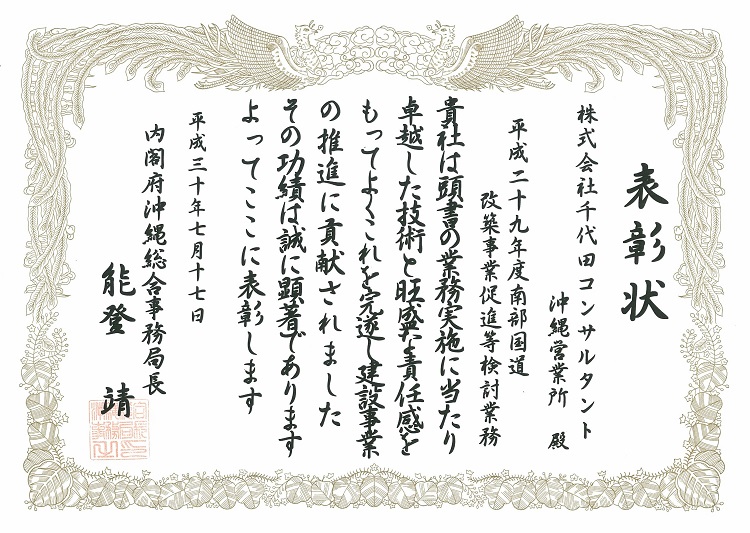 表彰状
株式会社千代田コンサルタント
沖縄営業所 殿
平成二十九年度南部国道
改築事業促進等検討業務
貴社は頭書の業務実施に当たり
卓越した技術と旺盛な責任感を
もってよくこれを完遂し建設事業
の推進に貢献されました
その功績は誠に顕著であります
よってここに表彰します
平成三十年七月十七日
内閣府沖縄総合事務局長
能登 靖